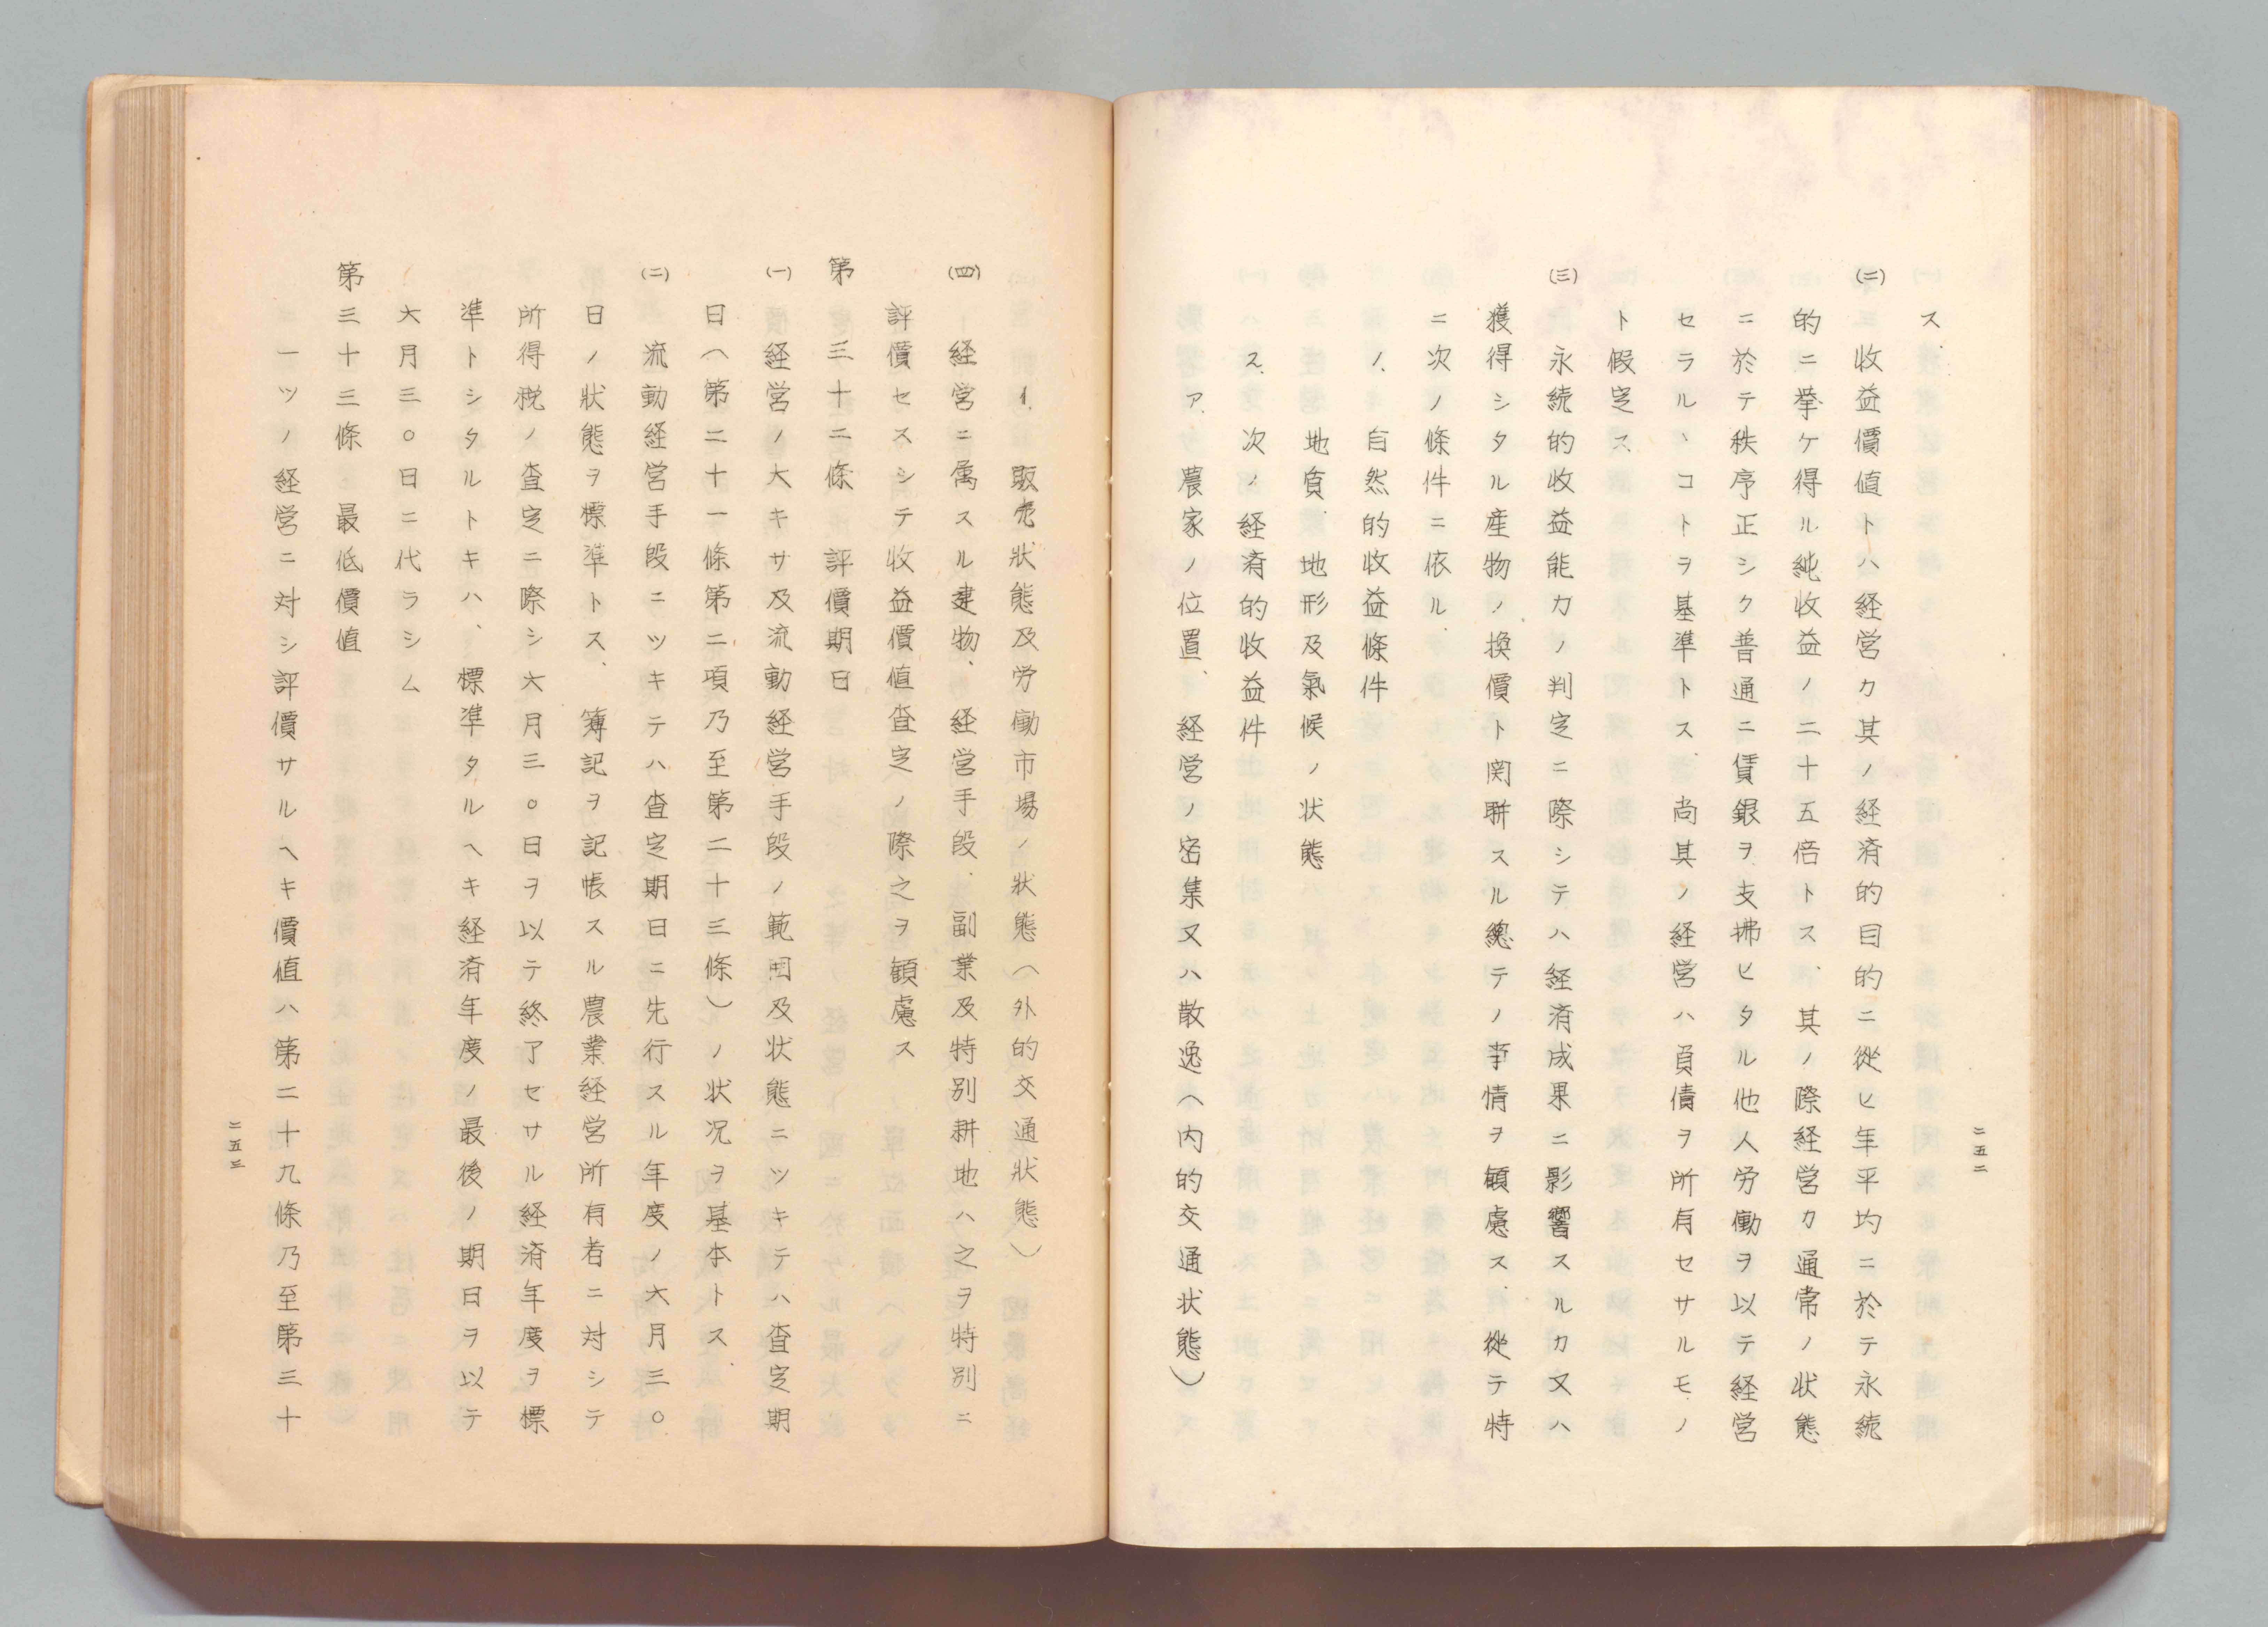 ス、
(二) 收益價値トハ経営カ其ノ経済的目的ニ從ヒ年平均ニ於テ永続
的ニ挙ケ得ル純收益ノ二十五倍トス、其ノ際経営カ通常ノ状態
ニ於テ秩序正シク普通ニ賃銀ヲ支拂ヒタル他人労働ヲ以テ経営
セラルヽコトヲ基準トス、尚其ノ経営ハ負債ヲ所有セサルモノ
ト假定ス
(三) 永続的收益能力ノ判定ニ際シテハ経済成果ニ影響スルカ又ハ
獲得シタル産物ノ換價ト関聯スル總テノ事情ヲ顧慮ス、從テ特
ニ次ノ條件ニ依ル、
ノ、自然的收益條件
地質、地形及氣候ノ状態
ス、次ノ経済的收益件
ア、農家ノ位置、経営ノ密集又ハ散逸(内的交通状態)
二五二
イ、販売狀態及労働市場ノ狀態(外的交通狀態)
(四) 経営ニ属スル建物、経営手段、副業及特別耕地ハ之ヲ特別ニ
評價セスシテ收益價値査定ノ際之ヲ顧慮ス
第三十二條 評價期日
(一) 経営ノ大キサ及流動経営手段ノ範囲及状態ニツキテハ査定期
日(第二十一條第二項乃至第二十三條)ノ状况ヲ基本トス、
(二) 流動経営手段ニツキテハ査定期日ニ先行スル年度ノ六月三〇
日ノ狀態ヲ標準トス、簿記ヲ記帳スル農業経営所有者ニ対シテ
所得税ノ査定ニ際シ六月三〇日ヲ以テ終了セサル経済年度ヲ標
準トシタルトキハ、標準タルヘキ経済年度ノ最後ノ期日ヲ以テ
六月三〇日ニ代ラシム
第三十三條 最低價値
一ツノ経営ニ対シ評價サルヘキ價値ハ第二十九條乃至第三十
二五三